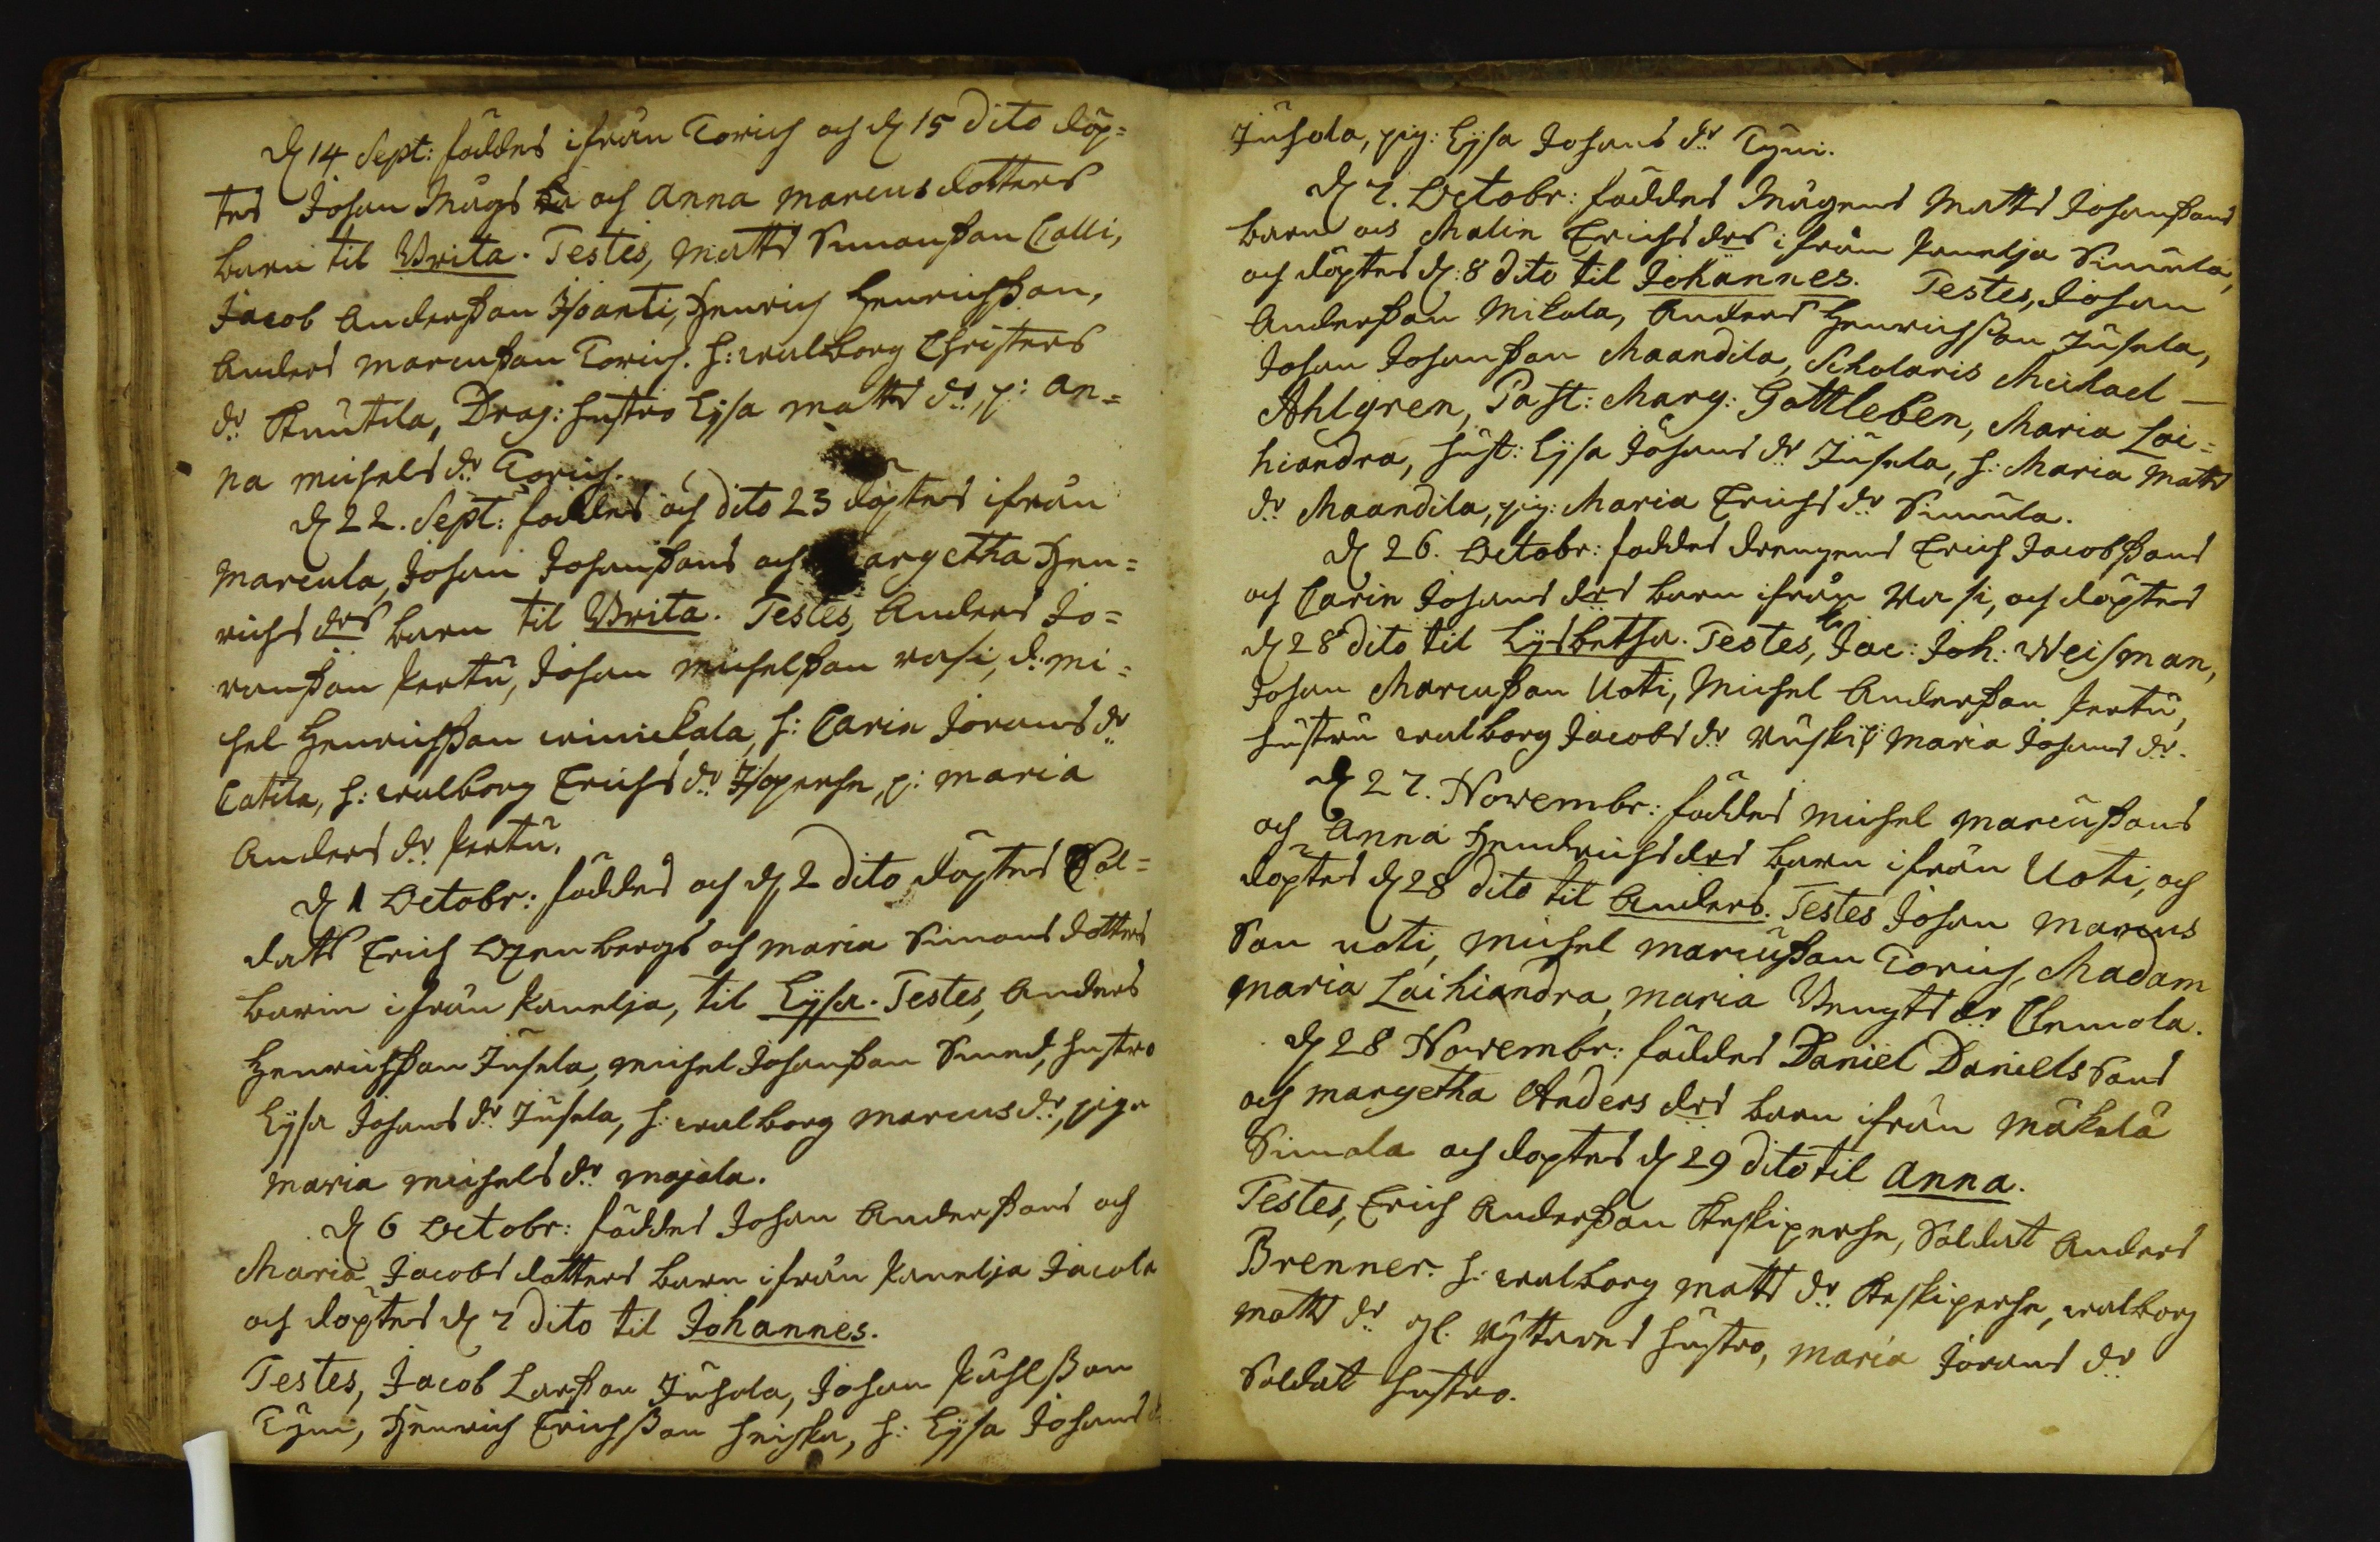 D 14 Sept: föddes ifrån Torich och d 15 dito döp=
tes Johan Mågs och Anna Marcus dotters
barn til Brita. Testes, Matts Simonsson Calli,
Jacob Andersson Isoanti, Henrich Henrichsson,
Anders Marcusson Torich. h: Walborg Christers
dr. Knutila, Drag: hustro Lysa Matts dr, p: An=
na Michels dr Torich.
D 22. Sept: föddes och dito 23 döptes ifrån
Marcula, Johan Johanssons och Margetha Hen=
richs drs barn til Brita. Testes, Anders Jö=
ransson Pertu, Johan Michelsson Vasi, d. Mi=
chel Henrichsson, h: Carin Jörans dr
Catila, h: Walborg Erichs dr Isoperhe, p: Maria
Anders dr Pertu.
D 1 Octobr: föddes och d 2 dito döptes Sol=
dats Erich Ozenbergs och Maria Simons dotters
barn ifrån Panelja, til Lysa. Testes, Anders
Henrichsson Jusela, Michel Johansson Smed, hustro
Lysa Johans dr Jusela, h: Walborg Marcus dr, piga
Maria Michels dr Majala.
D 6 Octobr: föddes Johan Anderssons och
Maria Jacobs dotters barn ifrån Panelja Jacola
och döptes d 7 dito til Johannes.
Testes, Jacob Larsson Juhola, Johan Påhlsson
Tyni, Henrich Erichsson Heiska, h: Lysa Johans dr
Juhola, pig: Lysa Johans dr Tyni.
D 7. Octobr: föddes Mågens Matts Johanssons
barn och Malin Erichs drs ifrån Panelja Simula,
och döptes d: 8 dito til Johannes. Testes, Johan
Andersson Mikola, Anders Henrichsson Jusela,
Johan Johansson Maandila, Scholaris Michael
Ahlgren, Past: Marg: Gottleben, Maria Lai=
hiandra, hust: Lysa Johans dr Jusela, h: Maria Matts
dr Maandila, pig: Maria Erichs dr Simula.
D 26. Octobr: föddes drengens Erich Jacobssons
och Carin Johans drs barn ifrån Vasi, och döptes
d 28 dito til Lysbetha. Testes, Jac: Joh: Weisman,
Johan Marcusson Uoti, Michel Andersson Pertu,
hustru Walborg Jacobs dr Ruski, Maria Johans dr.
D 27. Novembr: föddes Michel Marcussons
och Anna Hendrichs drs barn ifrån Uoti, och
döptes d 28 dito til Anders. Testes Johan Marcus
Son Uoti, Michel Marcusson Torich, Madam
Maria Laihiandra, Maria Bengts dr Clemola.
D 28 Novembr: föddes Daniel Daniels Sons
och Margetha Anders drs barn ifrån Mäkelä
Simola och döptes d 29 dito til Anna.
Testes, Erich Andersson Keskiperhe, Soldat Anders
Brenner. h: Walborg Matts dr Keskiperhe, Walborg
Matts dr gl. Ryttares hustro, Maria Jörans dr
Soldat hustro.